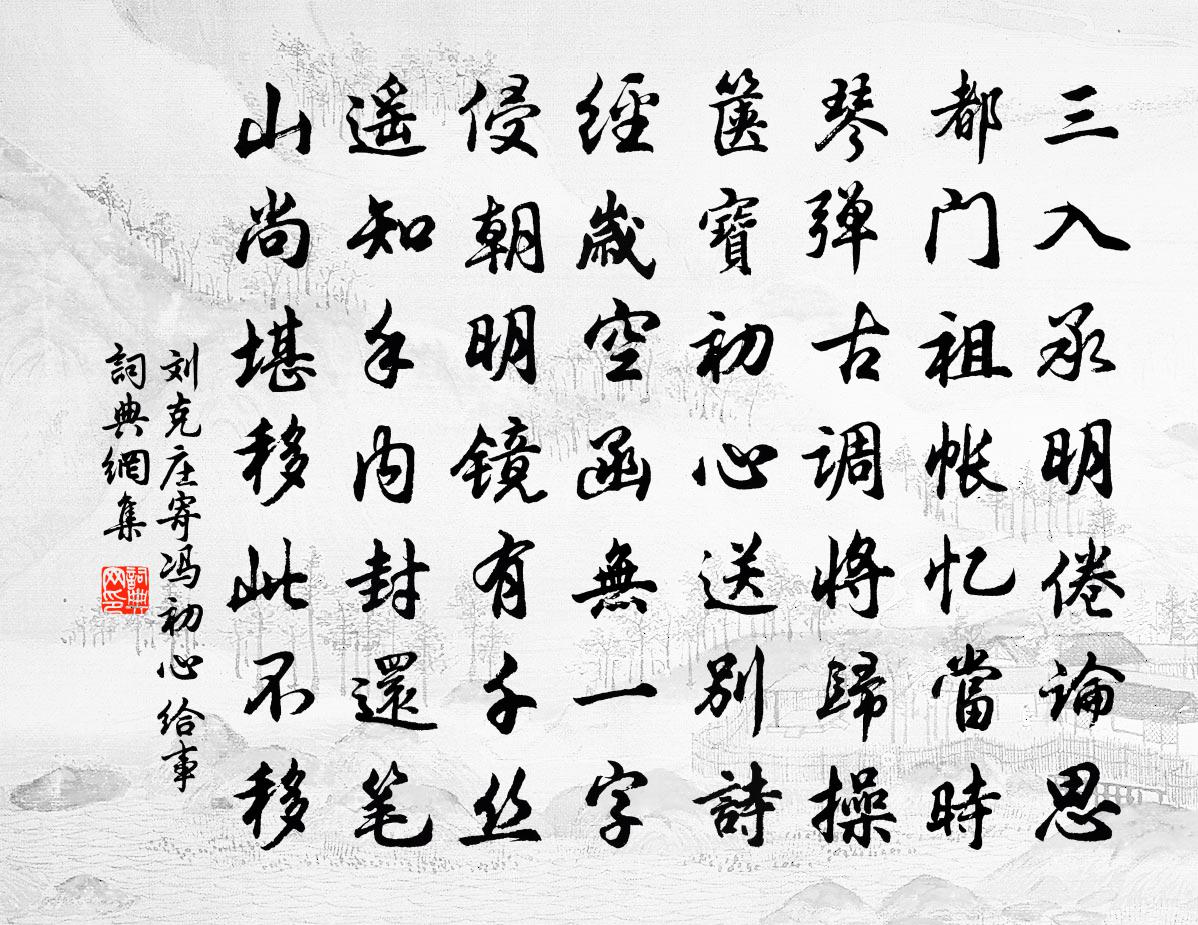 三入承明倦論思
都门祖帐忆當時
琴弹古调將歸操
箧寶初心送别詩
經歲空函無一字
侵朝明镜有千丝
遥知手内封還笔
山尚堪移此不移
刘克庄寄冯初心给事
詞典網集
詞典
网印